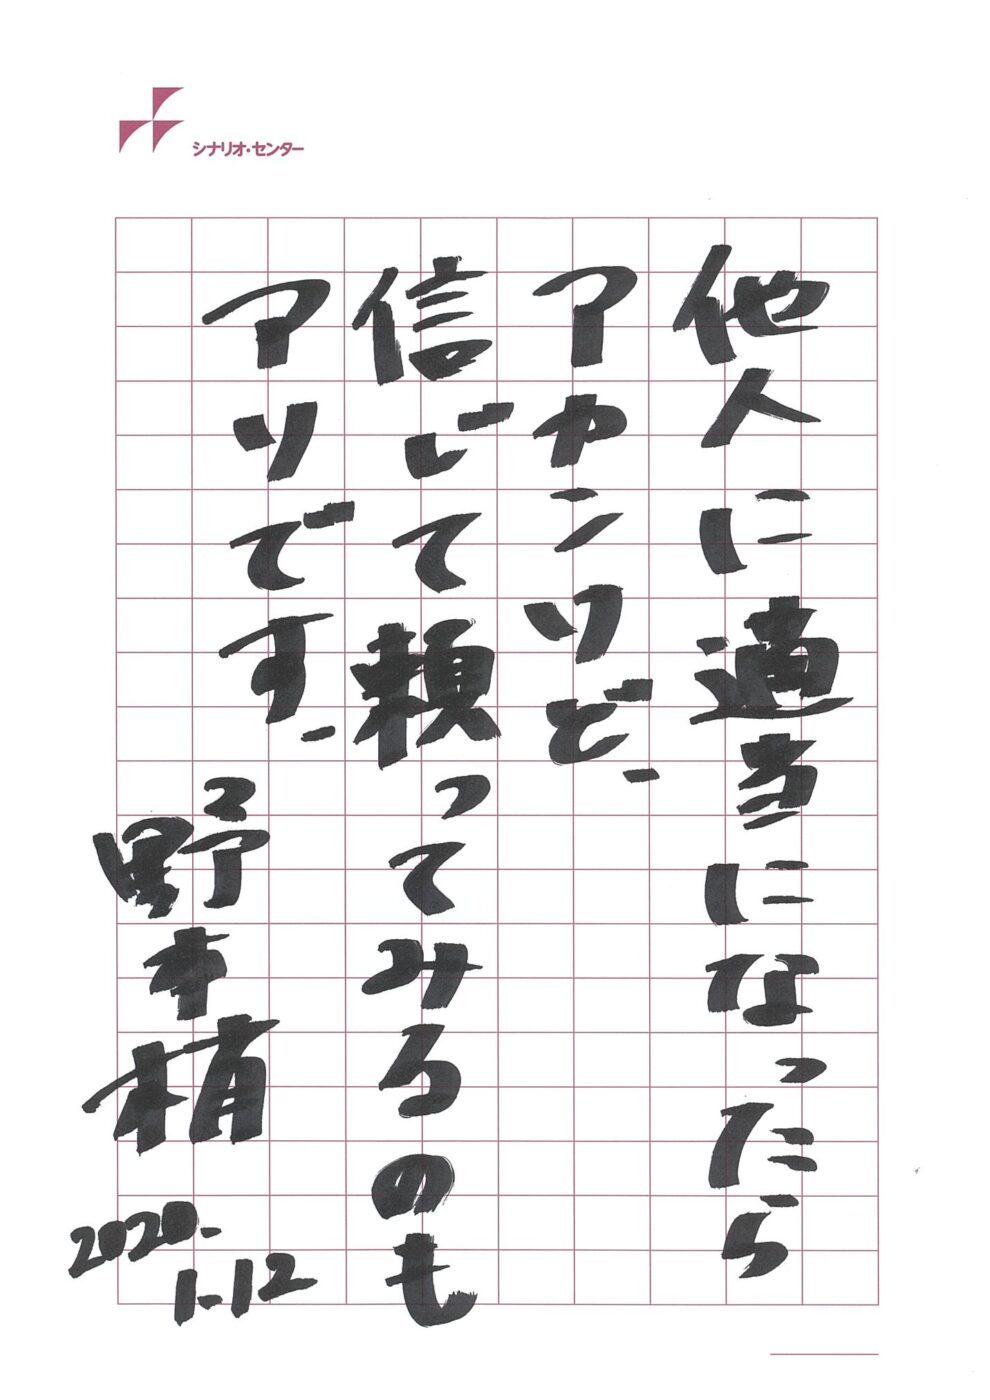 シナリオ・センター
他人に適当になったら
アカンけど、
信じて頼ってみるのも
アリです、
野本梢
2020.
1.12